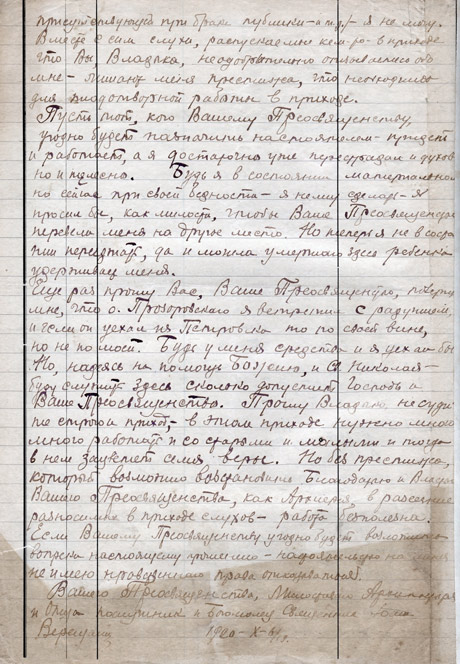 присутствующей при браке публики - и т.д. - я не могу.
Вместе с сим слухи, распускаемые кем-то в приходе
что Вы, Владыка, неодобрительно отзываетесь обо
мне - лишают меня престижа, что необходимо
для плодотворной работы в приходе.
Пусть тот, кого Вашему Преосвященству,
угодно будет назначить настоятелем - придет
и работает, а я достаточно уже перестрадал и духов
но и телесно. Будь я в состоянии материально
но сейчас при своей бедности - я не могу сделать - я
просил бы, как милости, чтобы Ваше Преосвященство
перевели меня на другое место. Но теперь я не в состо
янии переезжать, да и могила умершего здесь ребенка
удерживает меня.
Еще раз прошу Вас, Ваше Преосвященство, поверить
мне, что о. Прозоровского я встретил с радушием,
и если он уехал из Петровка то по своей вине,
но не по моей. Будь у меня средства и я уехал бы
Но, надеясь на помощь Божию, и Св Николая -
буду служить здесь сколько допустит Господь и
Ваше Преосвященство. Прошу Владыко, не суди
те строго приход - в этом приходе нужно много
много работать и со старыми и малыми и тогда
в нем зацветет семя веры. Но без престижа,
который возможно восстановить Благодатию и Властью
Вашего Преосвященства, как Архиерея, в рассеянии
разносимых в приходе слухов - работа бесполезна.
Если Вашему Преосвященству угодно будет возложить
вопреки настоящему прошению - настоятельство на меня
не имею нравственного права отказываться.
Вашего Преосвященства, Милостивого Архипастыря
и Отца послушник и богомолец Священник
1920 - X - 6/